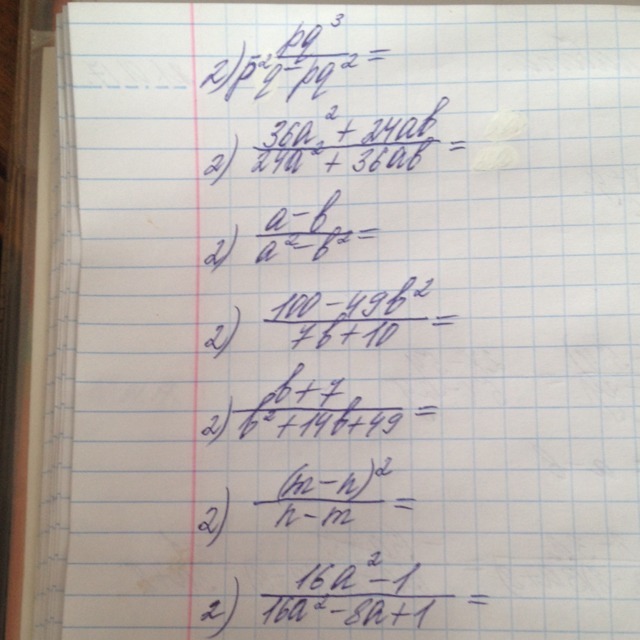 2) pq³/(p²q - pq²) =
2) (36a² + 24ab)/(24a² + 36ab) =
2) (a - b)/(a² - b²) =
2) (100 - 49b²)/(7b + 10) =
2) (b + 7)/(b² + 14b + 49) =
2) (m - n)²/(n - m) =
2) (16a² - 1)/(16a² - 8a + 1) =